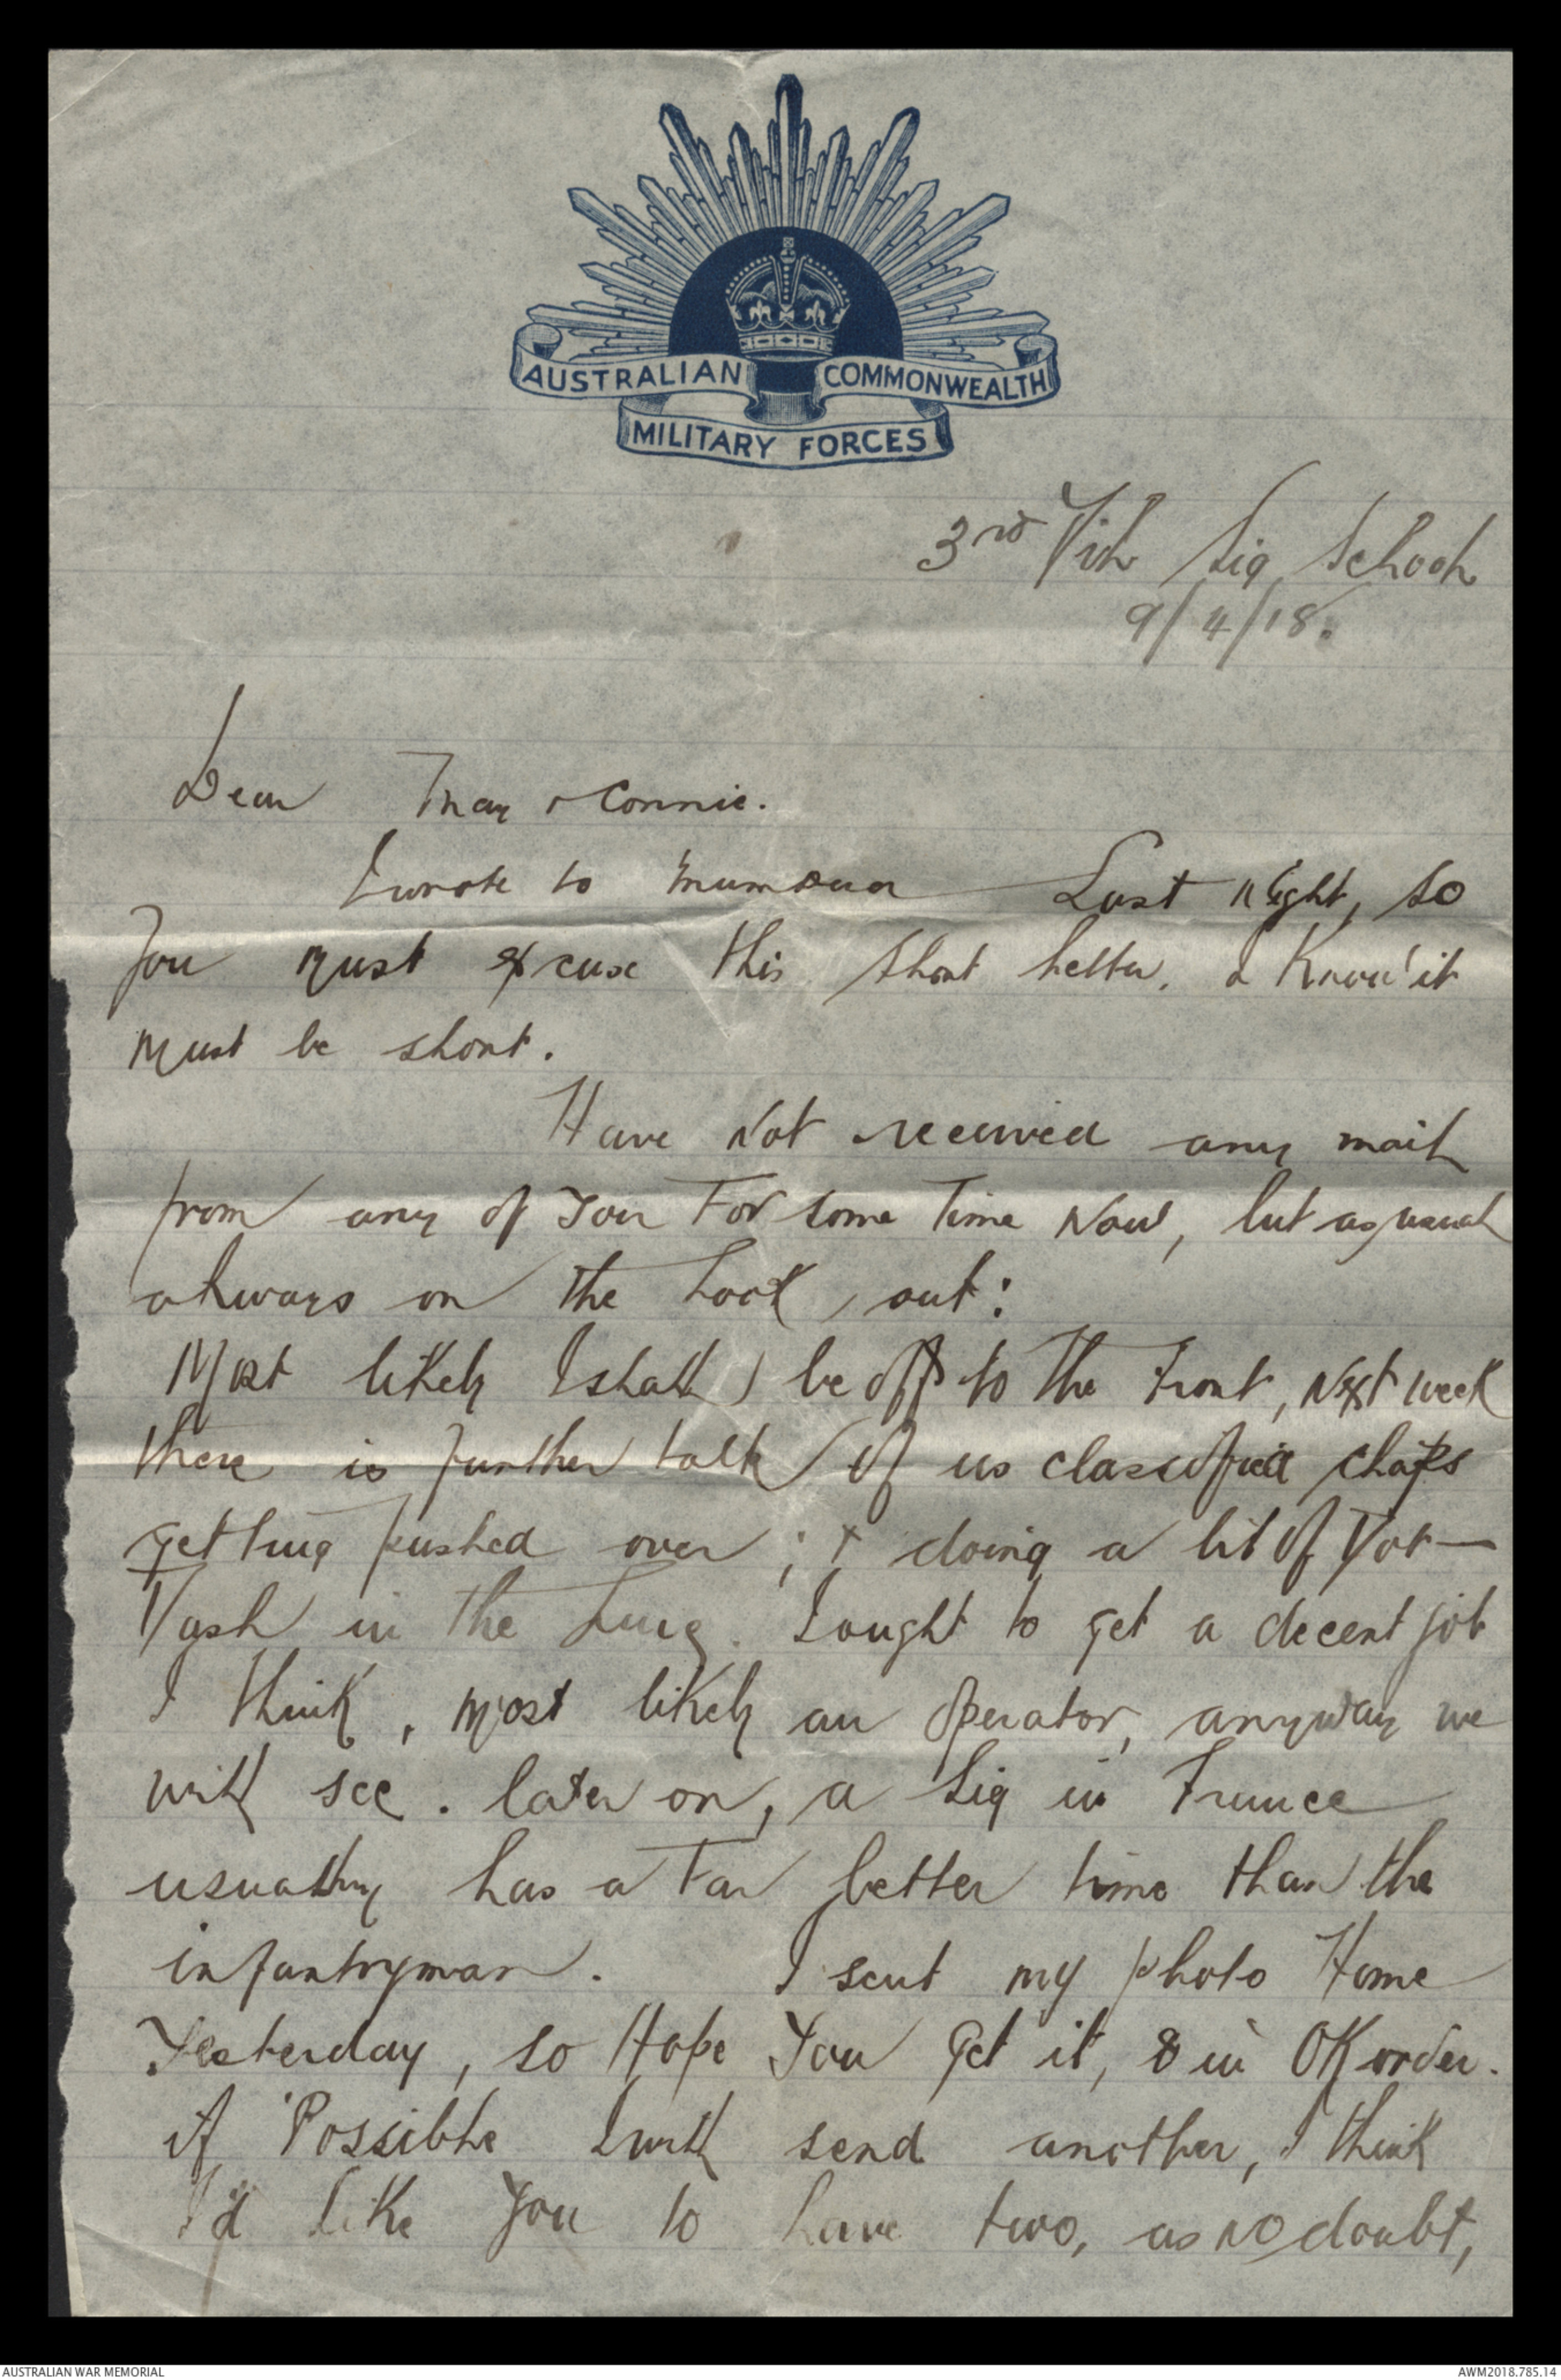 AUSTRALIAN COMMONWEALTH
MILITARY FORCES
3rd Div Sig School
9/4/18.
Dear May & Connie.
I wrote to Mum Last night, so
You must excuse this short letter. I know it
must be short.
Have Not received any mail
from any of You For some Time Now, but as usual
always on the Look, out:
Most likely I shall be off to The Front, Next week
there is further talk of us classified chaps
getting pushed over; & doing a bit of Dot-
Dash in the Line. I ought to get a decent job
I think, most likely an Operator, anyway we
will see. later on, a Sig in France
usually has a Far better time than the
infantryman. I sent my photo Home
Yesterday, so Hope You Get it, & in OK order.
if Possible I will send another, I think
I'd like You to have two, as NO doubt,
AUSTRALIAN WAR MEMORIAL
AWM2018.785.14